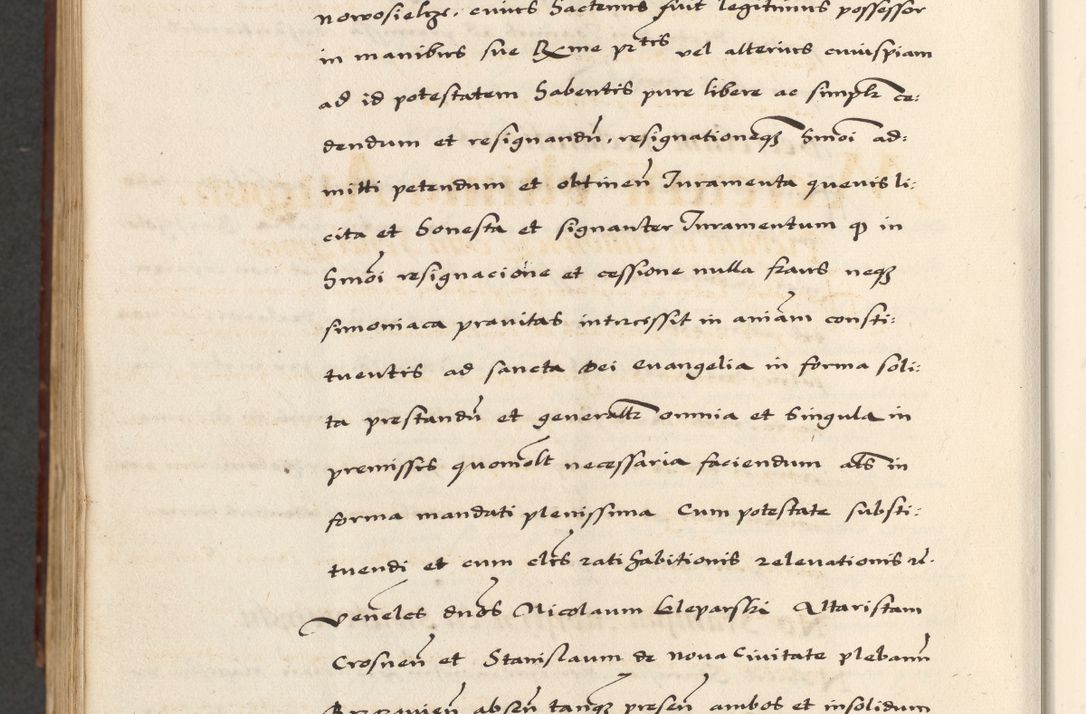 nowosielze, cuius hactenus fuit legitimus possessor
in manibus sue Rme prtis vel alterius cuiuspiam
ad id potestatem habentis pure libere ac simplr ce:
dendum et resignandū, resignationeqȝ hmōi ad:
mitti petendum et obtineñ Juramenta quevis li:
cita et honesta et signanter Juramentum ꝙ in
hmōi resignacione et cessione nulla fraus neqȝ
simoniaca pravitas intercessit in aniam consti:
tuentis ad sancta Dei evangelia in forma soli:
ta prestandū et generaltr omnia et singula in
premissis quomōlt necessaria faciendum als in
forma mandati plenissima Cum potestate substi:
tuendi et cum clis ratihabitionis relevationis rē.
Veneles dnos Nicolaum Kleparski Altaristam
Crosneñ et Stanislaum de nova Civitate plebanū
absen tanqȝ presen ambos et insolidum